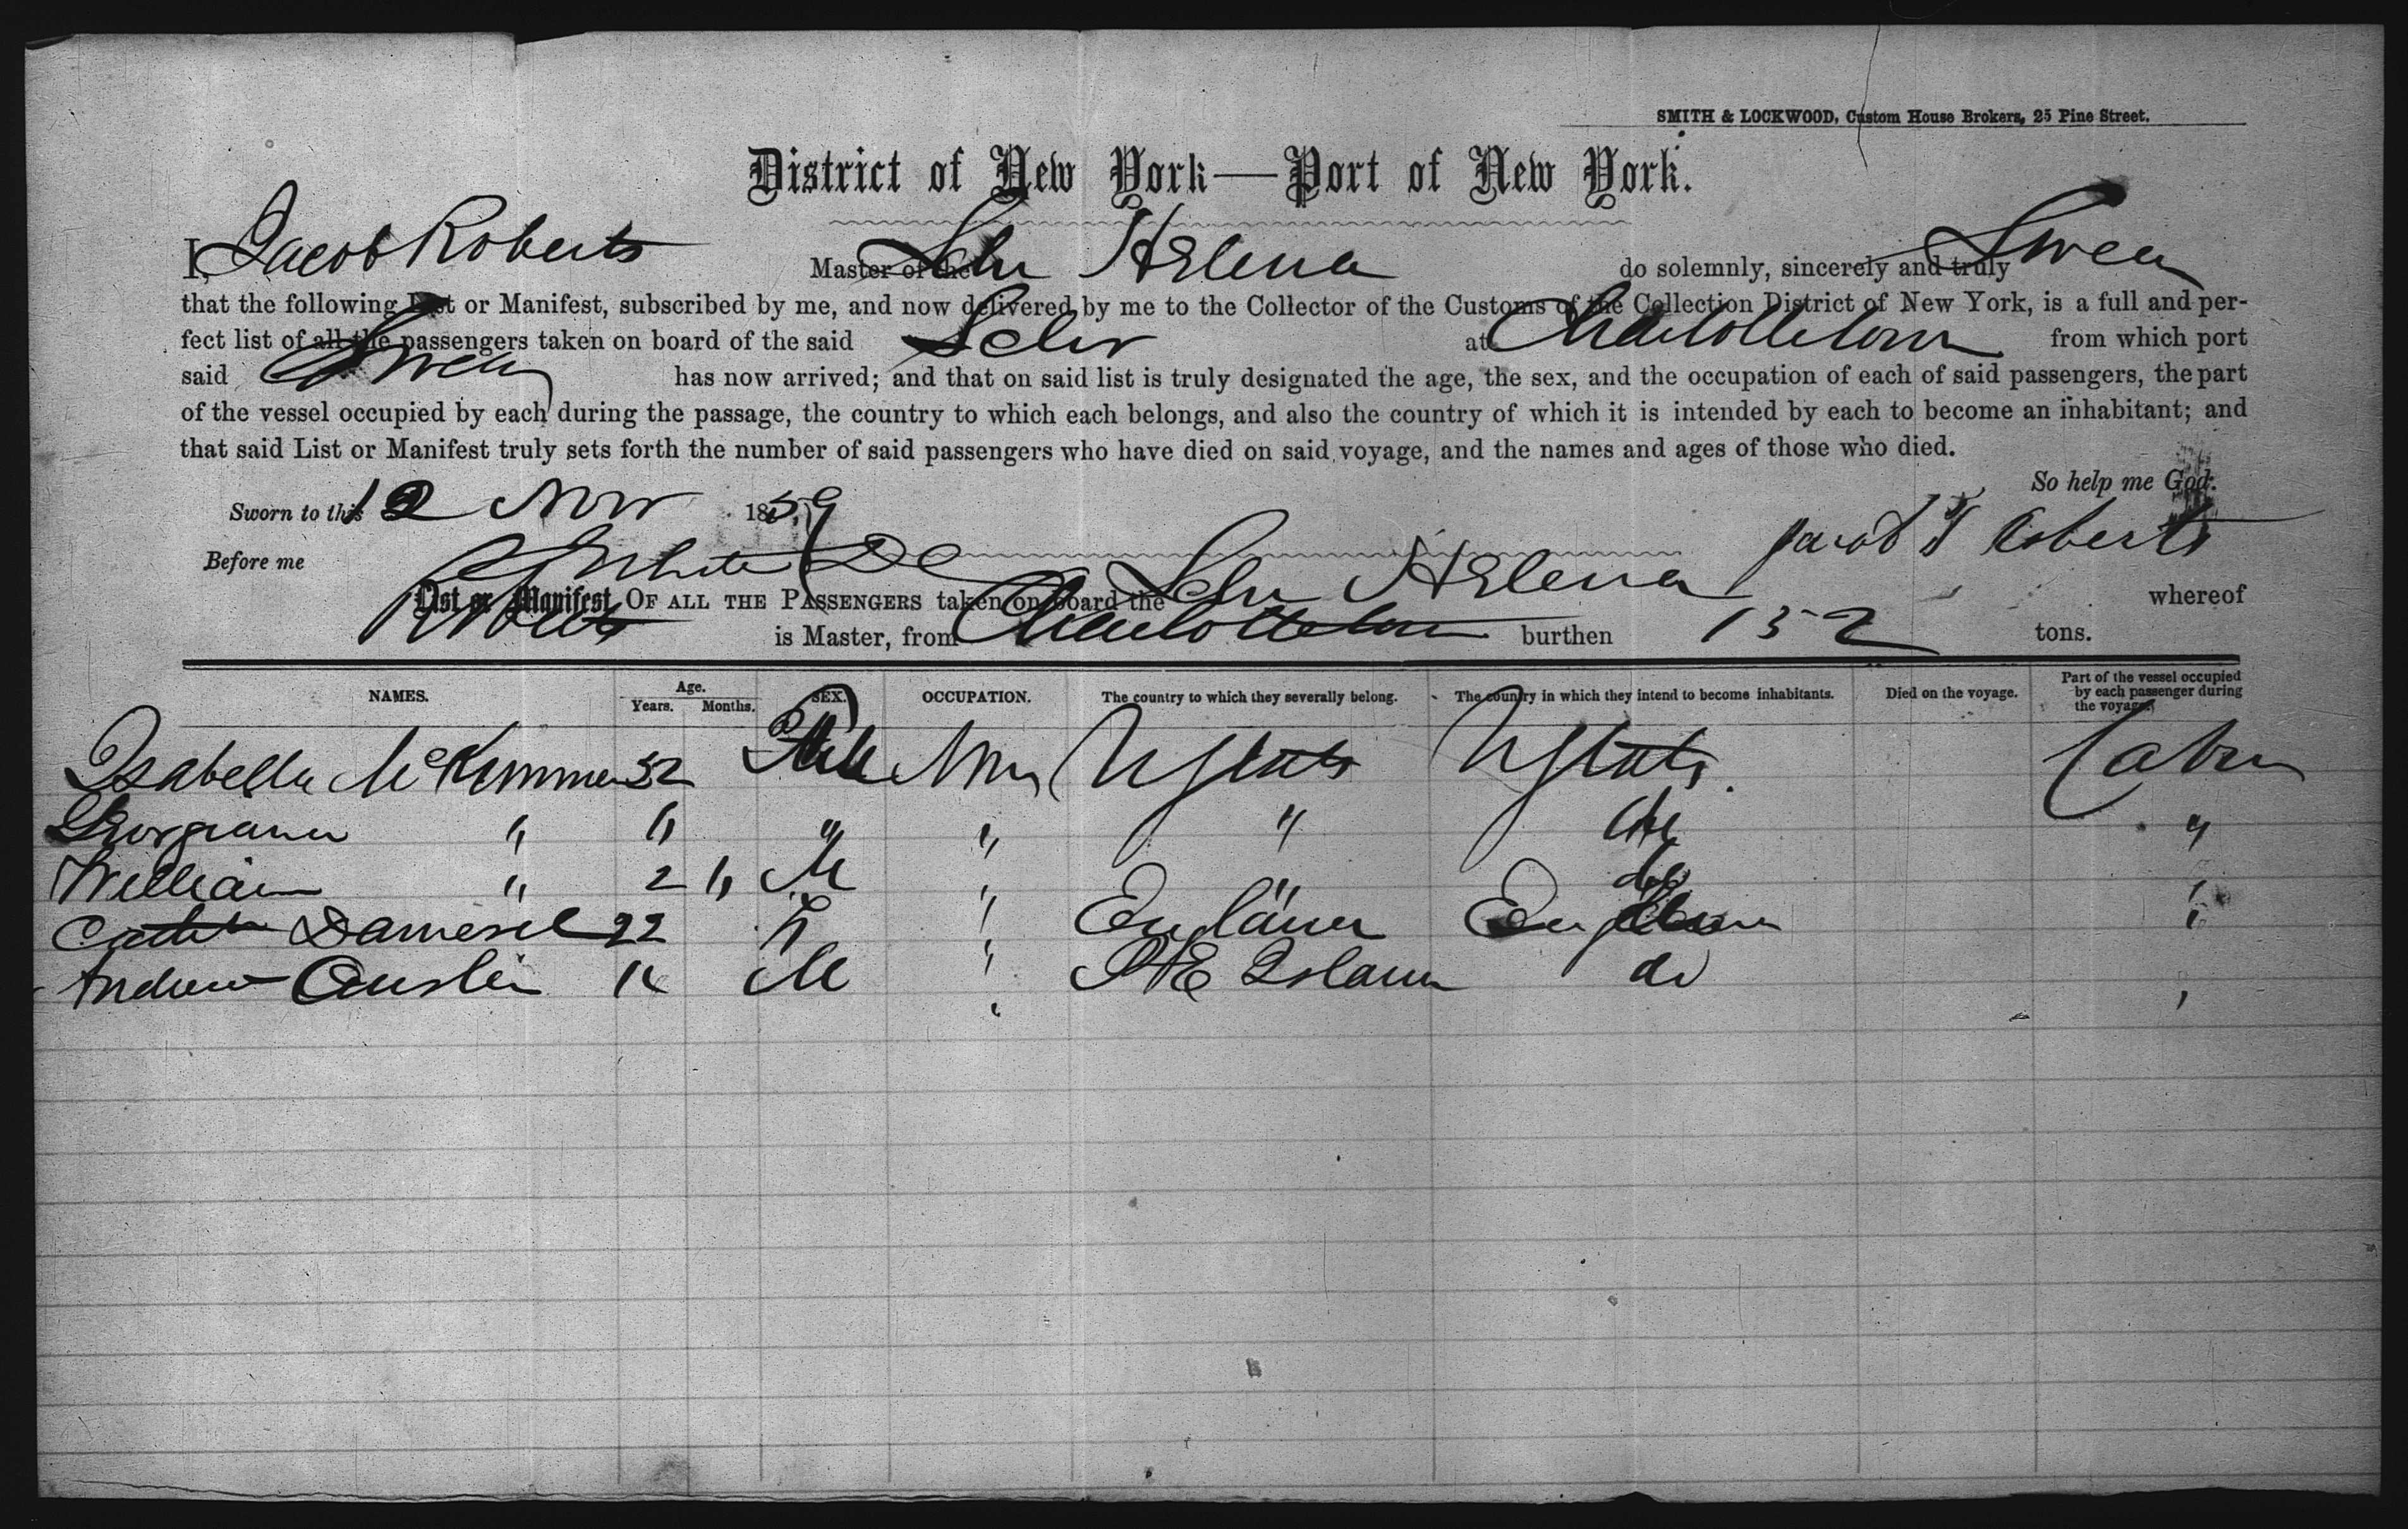 SMITH & LOCKWOOD, Custom House Brokers, 25 Pine Street.
District of New York—Port of New York.
I, Jacob Roberts Master of the Schr Helena do solemnly, sincerely and truly Swear
that the following List or Manifest, subscribed by me, and now delivered by me to the Collector of the Customs of the Collection District of New York, is a full and per-
fect list of all the passengers taken on board of the said Schr at Charlottetown from which port
said has now arrived; and that on said list is truly designated the age, the sex, and the occupation of each of said passengers, the part
of the vessel occupied by each during the passage, the country to which each belongs, and also the country of which it is intended by each to become an inhabitant; and
that said List or Manifest truly sets forth the number of said passengers who have died on said voyage, and the names and ages of those who died.
So help me God.
Sworn to this 12 Nov 1859
Jacob Roberts
Before me White
List or Manifest OF ALL THE PASSENGERS taken on board the Schr Helena whereof
Roberts is Master, from Charlottetown burthen 152 tons.
NAMES. Age. Years. Months. SEX. OCCUPATION. The country to which they severally belong. The country in which they intend to become inhabitants. Died on the voyage. Part of the vessel occupied by each passenger during the voyage.
Isabella 32 None U States U States Cabin
Georgiana " " " " " "
William " 2 " M " do
22 F England England
Andrew Austin M P E Island do